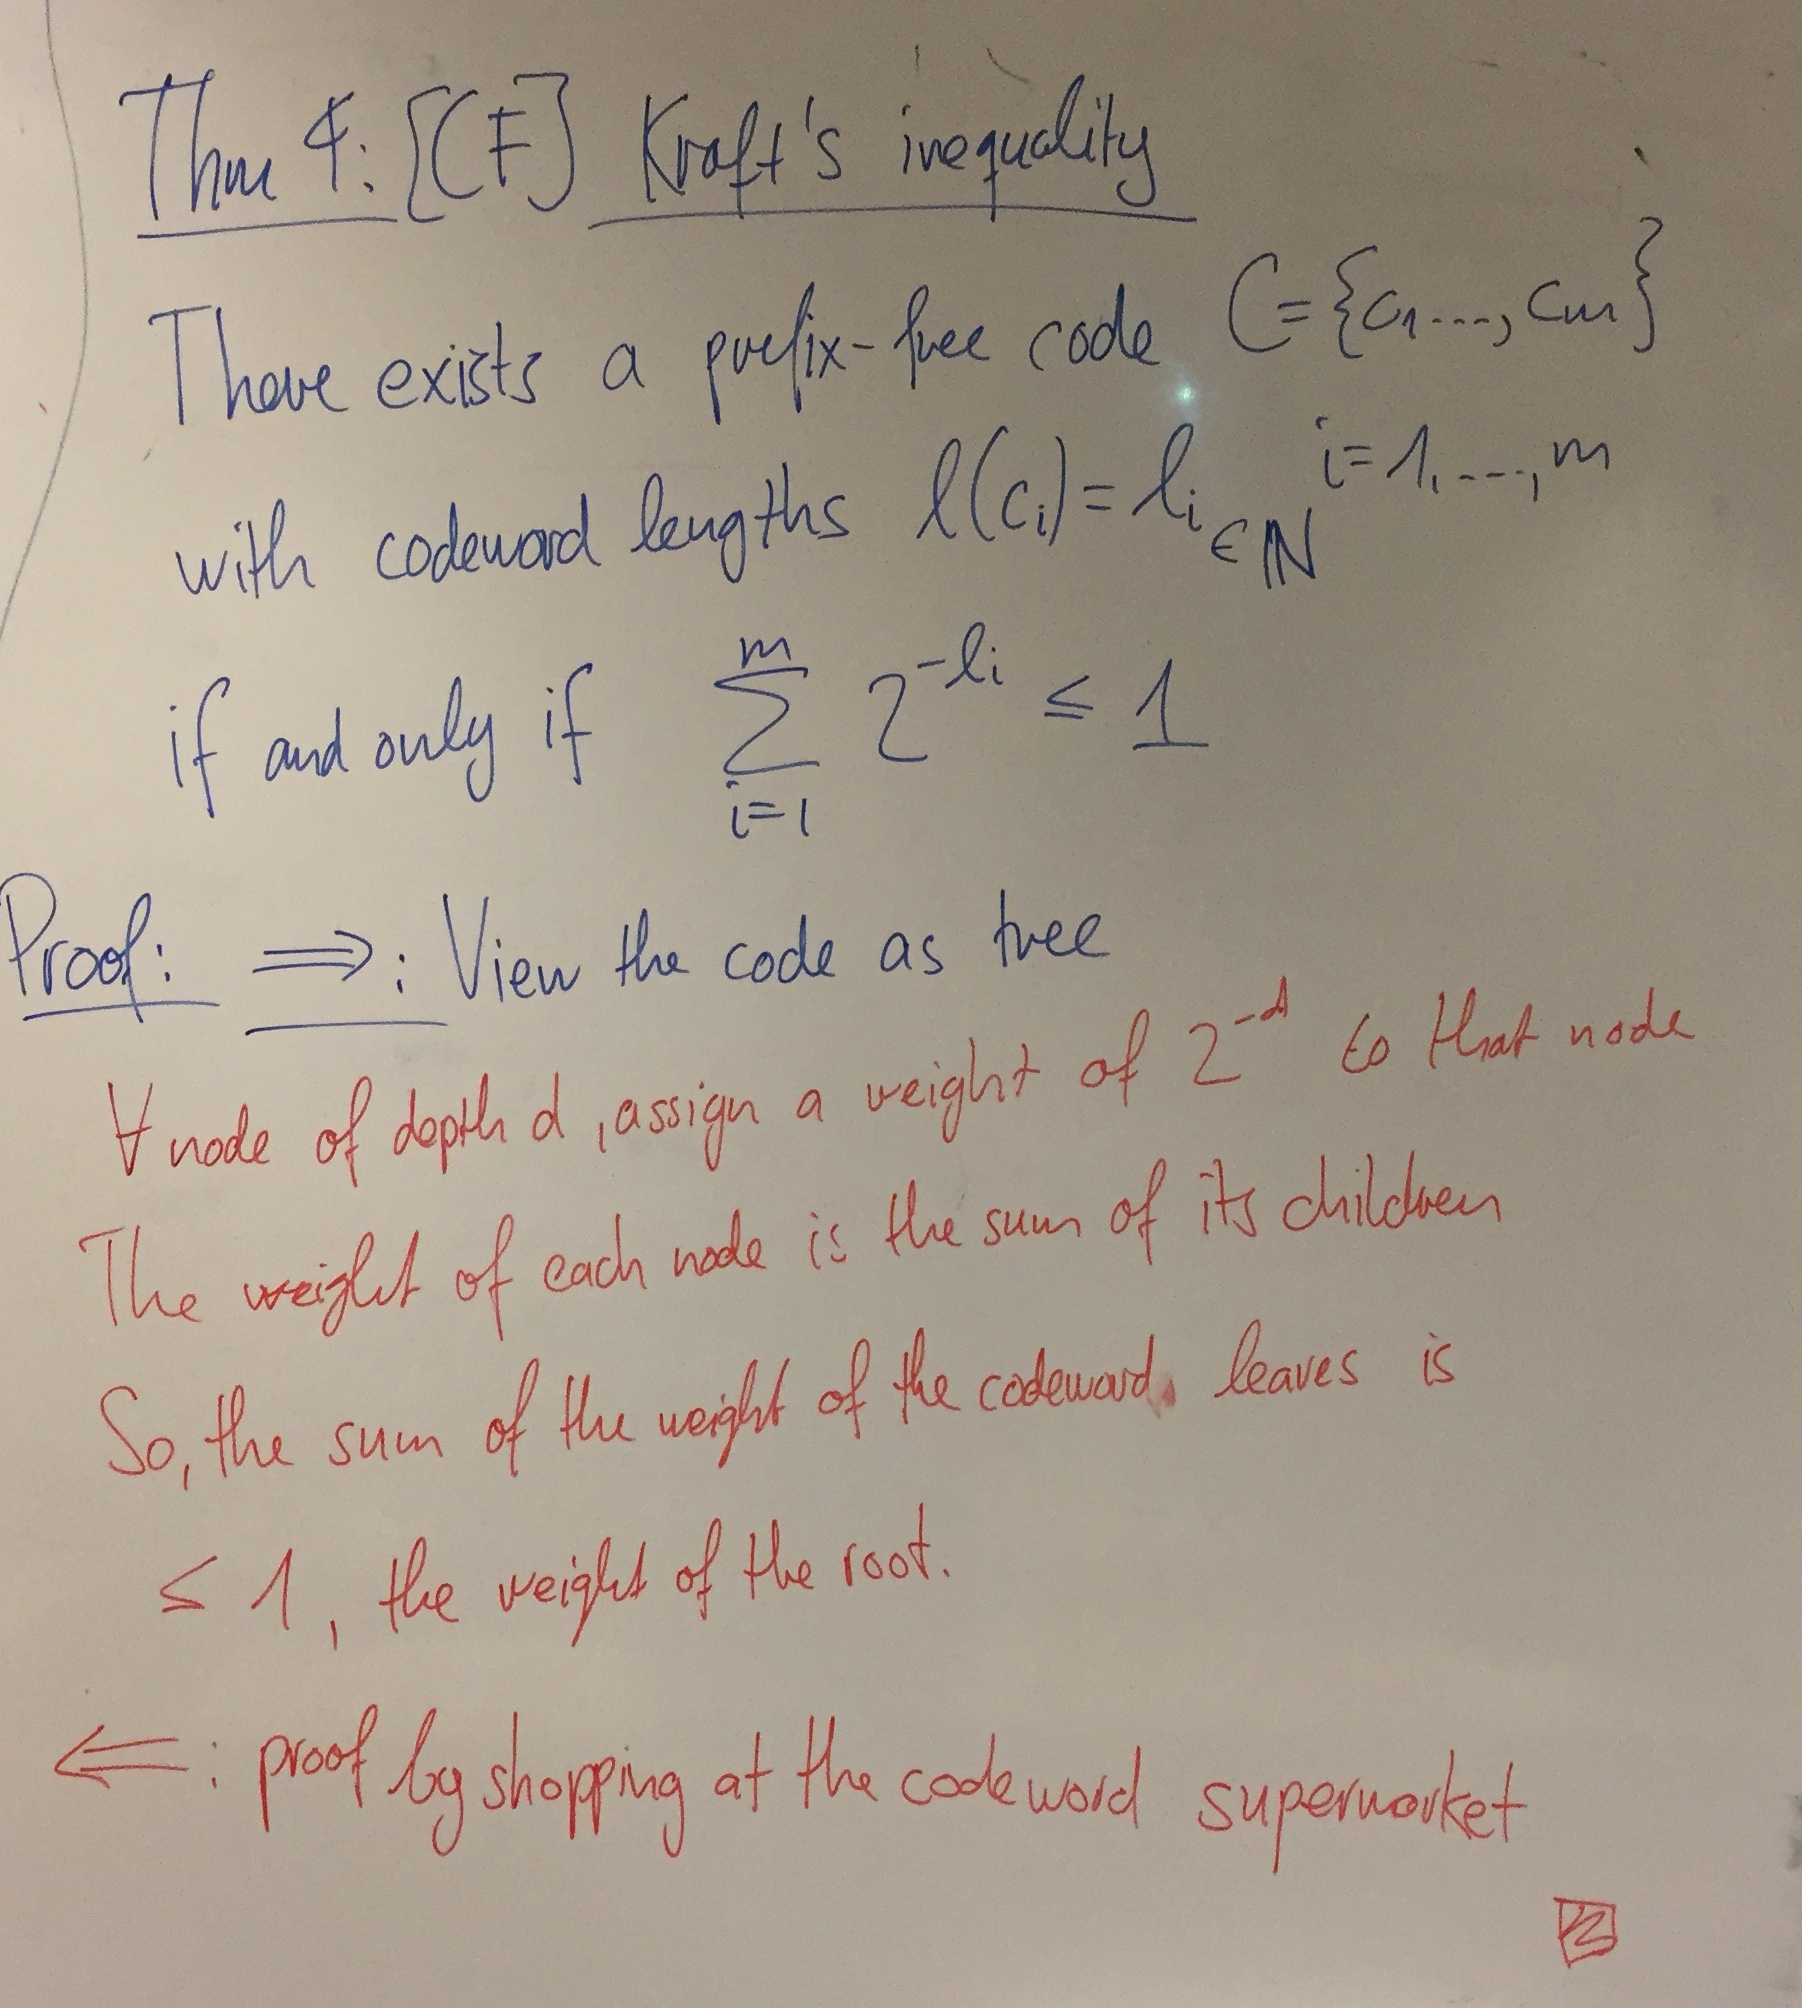 Thm 4: [CF] Kraft's inequality
There exists a prefix-free code C = {c₁..., cₘ}
with codeword lengths ℓ(cᵢ) = ℓᵢ ∈ ℕ i = 1, ..., m
if and only if ∑ᵢ₌₁ᵐ 2^(-ℓᵢ) ≤ 1
Proof: ⟹: View the code as tree
∀ node of depth d, assign a weight of 2^(-d) to that node
The weight of each node is the sum of its children
So, the sum of the weight of the codeword leaves is
≤ 1, the weight of the root.
⟸: proof by shopping at the codeword supermarket